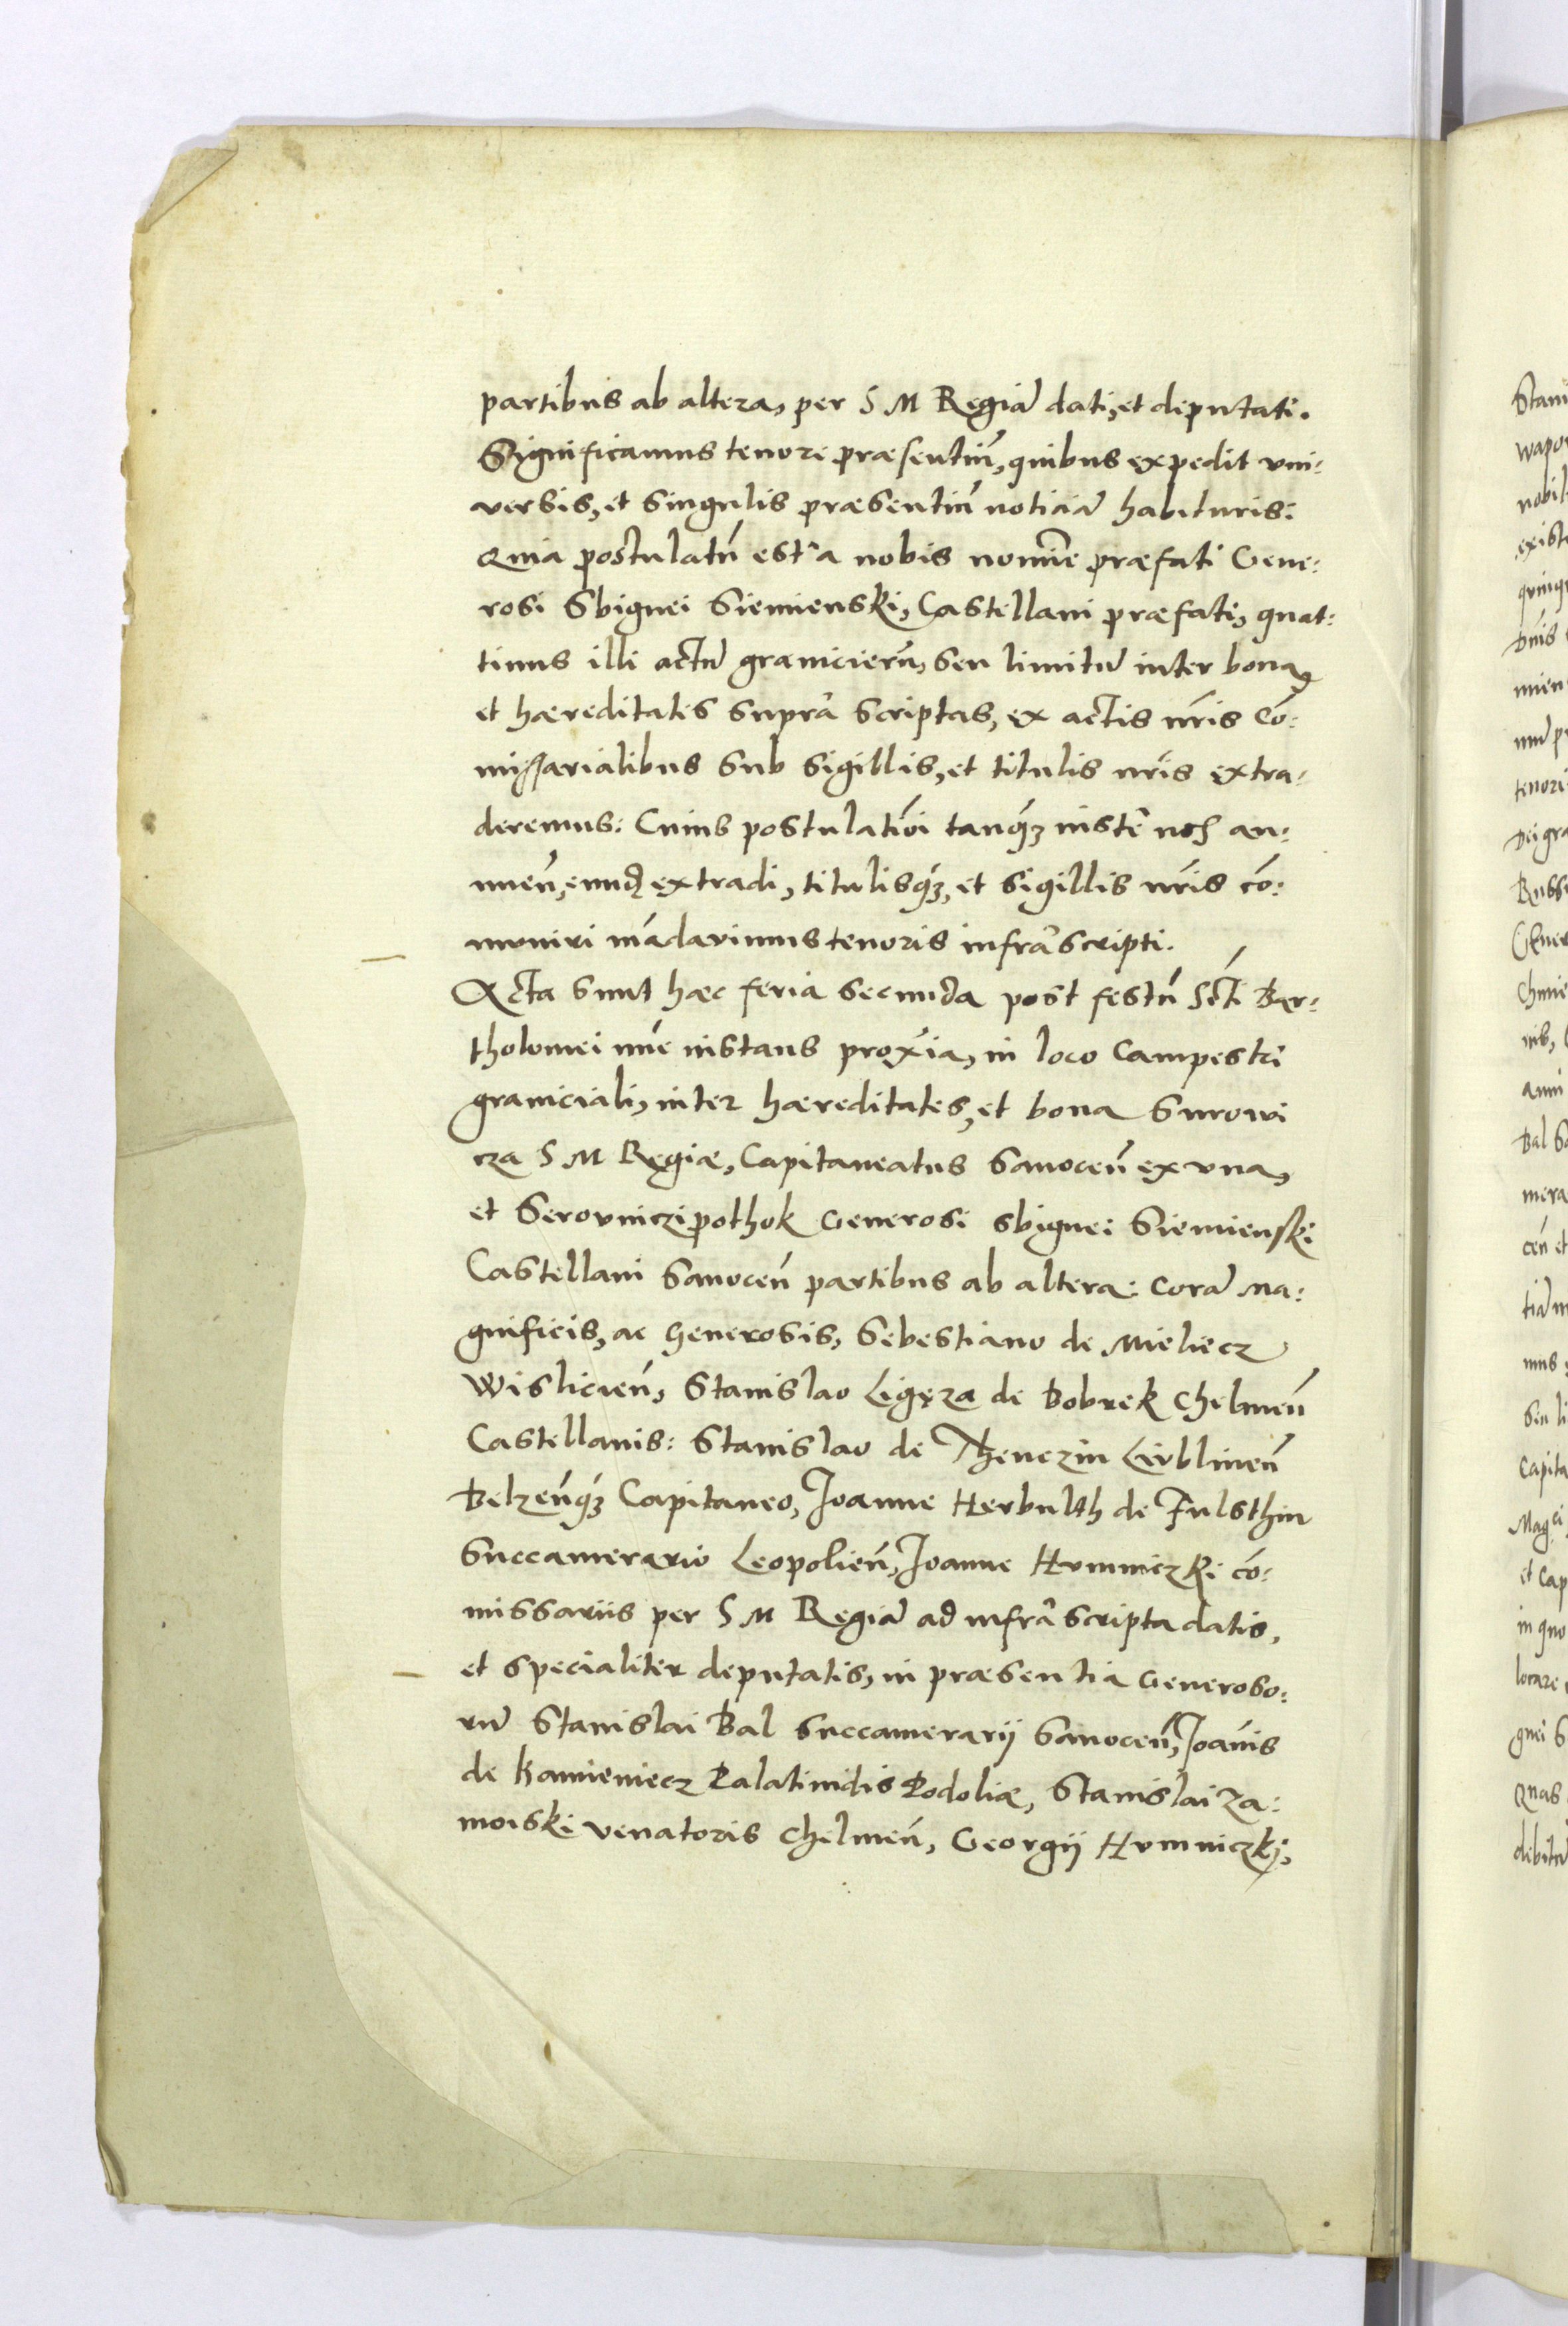 partibus ab altera, per S M Regiã dati, et deputati.
Significamus tenore præsentiũ, quibus expedit vni:
versis, et singulis præsentiũ noticiã habituris:
Quia postulatũ est a nobis nomĩe præfati Gene:
rosi Sbignei Siemienski, Castellani præfati, quat:
tinus illi actũ granicierũ, seu limitũ inter bona,
et hæreditates supra scriptas, ex actis nr̃is Cõ:
missarialibus sub sigillis, et titulis nr̃is extra:
deremus: Cuius postulatiõi tanq̃ȝ iustę nos an:
nuen̄, eundę extradi, titulisq̃ȝ, et sigillis nr̃is cõ:
muniri mãdavimus tenoris infrascripti.
Acta sunt hæc feria secunda post festũ Scti Bar:
tholomei nũc instans proxĩa, in loco Campestri
graniciali, inter hæreditates, et bona Surowi
cza S M Regiæ, Capitaneatus Sanocen̄ ex vna,
et Serovniczipothok Generosi Sbignei Siemienski
Castellani Sanocen̄ partibus ab altera: Corã Ma:
gnificis, ac Generosis, Sebestiano de Mieliecz
Wislicien̄, Stanislao Ligęza de Bobrek Chelmen̄
Castellanis: Stanislao de Thenczin Lublinen̄
Belzen̄q̃ȝ Capitaneo, Joanne Herbulth de Fulsthin
Succamerario Leopolien̄, Joanne Humniczki cõ:
missariis per S M Regiã ad infra scripta datis,
et specialiter deputatis, in præsentia Generoso:
rũ Stanislai Bal Succamerarij Sanocen̄, Joãnis
de Kamieniecz Palatinidis Podoliæ, Stanislai Za:
moiski venatoris Chelmen̄, Georgij Humniczkj,